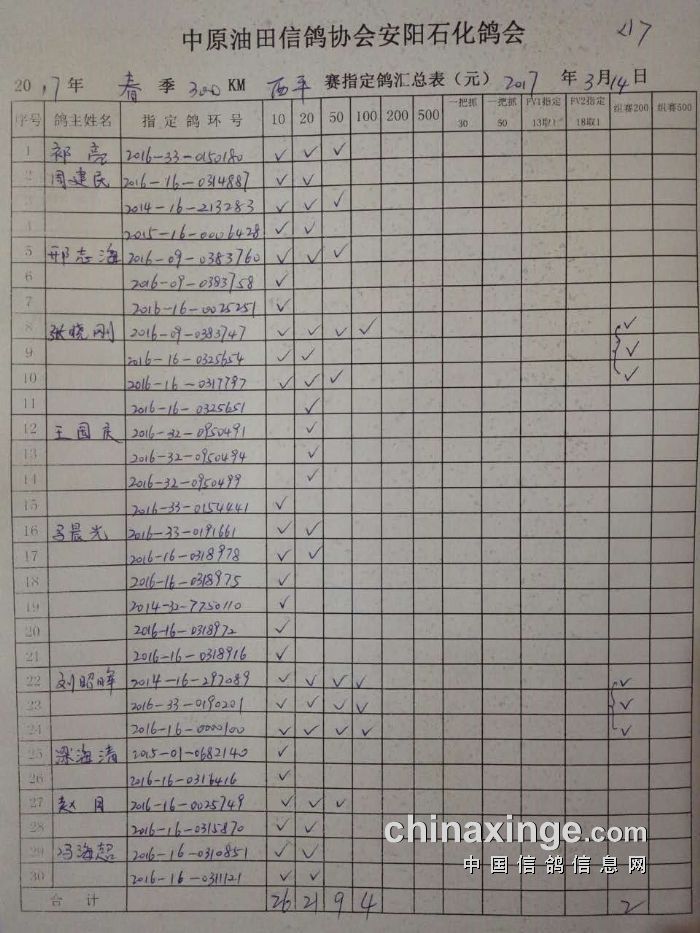 中原油田信鸽协会安阳石化鸽会 217
2017年 春 季 300 KM 西平 赛指定鸽汇总表（元）2017 年 3月 14日
序号 鸽主姓名 指定鸽环号 10 20 50 100 200 500 一把抓30 一把抓50 FV1指定13取1 FV2指定18取1 组赛200 组赛500
1 祁亮 2016-33-0150180 ✓ ✓ ✓
2 周建民 2016-16-0314887 ✓ ✓
3 2014-16-213283 ✓ ✓ ✓
4 2015-16-0006428 ✓ ✓
5 邢志海 2016-09-0383760 ✓ ✓ ✓
6 2016-09-0383758 ✓
7 2016-16-0025251 ✓
8 张晓刚 2016-09-0383747 ✓ ✓ ✓ ✓ ✓
9 2016-16-0325654 ✓ ✓ ✓
10 2016-16-0317797 ✓ ✓ ✓ ✓
11 2016-16-0325651 ✓
12 王国庆 2016-32-0950491 ✓
13 2016-32-0950494 ✓
14 2016-32-0950499 ✓
15 2016-33-0154441 ✓
16 马晨光 2016-33-0191661 ✓ ✓
17 2016-16-0318978 ✓ ✓
18 2016-16-0318975 ✓
19 2014-32-7750110 ✓
20 2016-16-0318972 ✓
21 2016-16-0318916 ✓
22 刘昭晖 2014-16-297089 ✓ ✓ ✓ ✓ ✓
23 2016-33-0190201 ✓ ✓ ✓ ✓ ✓
24 2016-16-0000100 ✓ ✓ ✓ ✓ ✓
25 梁海清 2015-01-0682140 ✓
26 2016-16-0316416 ✓
27 赵 2016-16-0025749 ✓ ✓ ✓
28 2016-16-0315870 ✓ ✓
29 冯海超 2016-16-0310851 ✓ ✓
30 2016-16-0311121 ✓ ✓
合计 26 21 9 4 2
chinaxinge.com
中国信鸽信息网